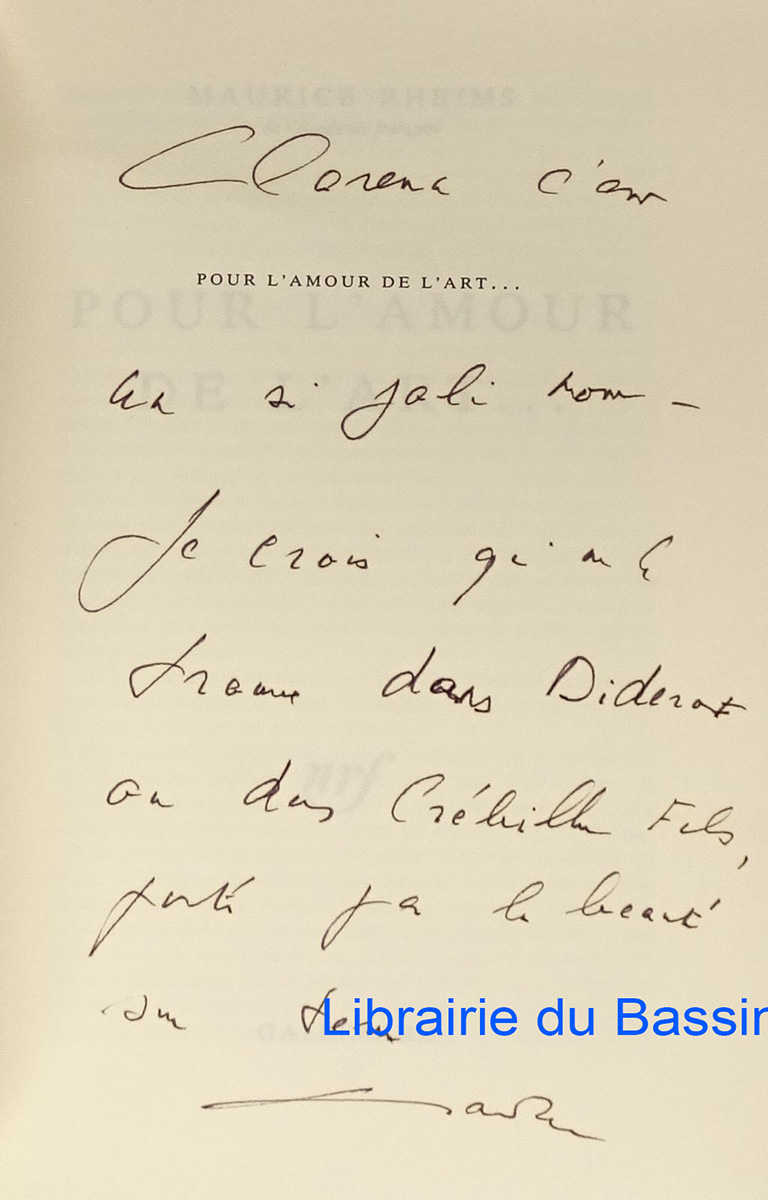 MAURICE RHEIMS
de l'Académie française
Clorena c'est
POUR L'AMOUR DE L'ART...
POUR L'AMOUR
DE L'ART...
un si joli nom –
Je crois qu'on le
trouve dans Diderot
ou dans Crébillon Fils,
porté par la beauté
nrf
Librairie du Bassin